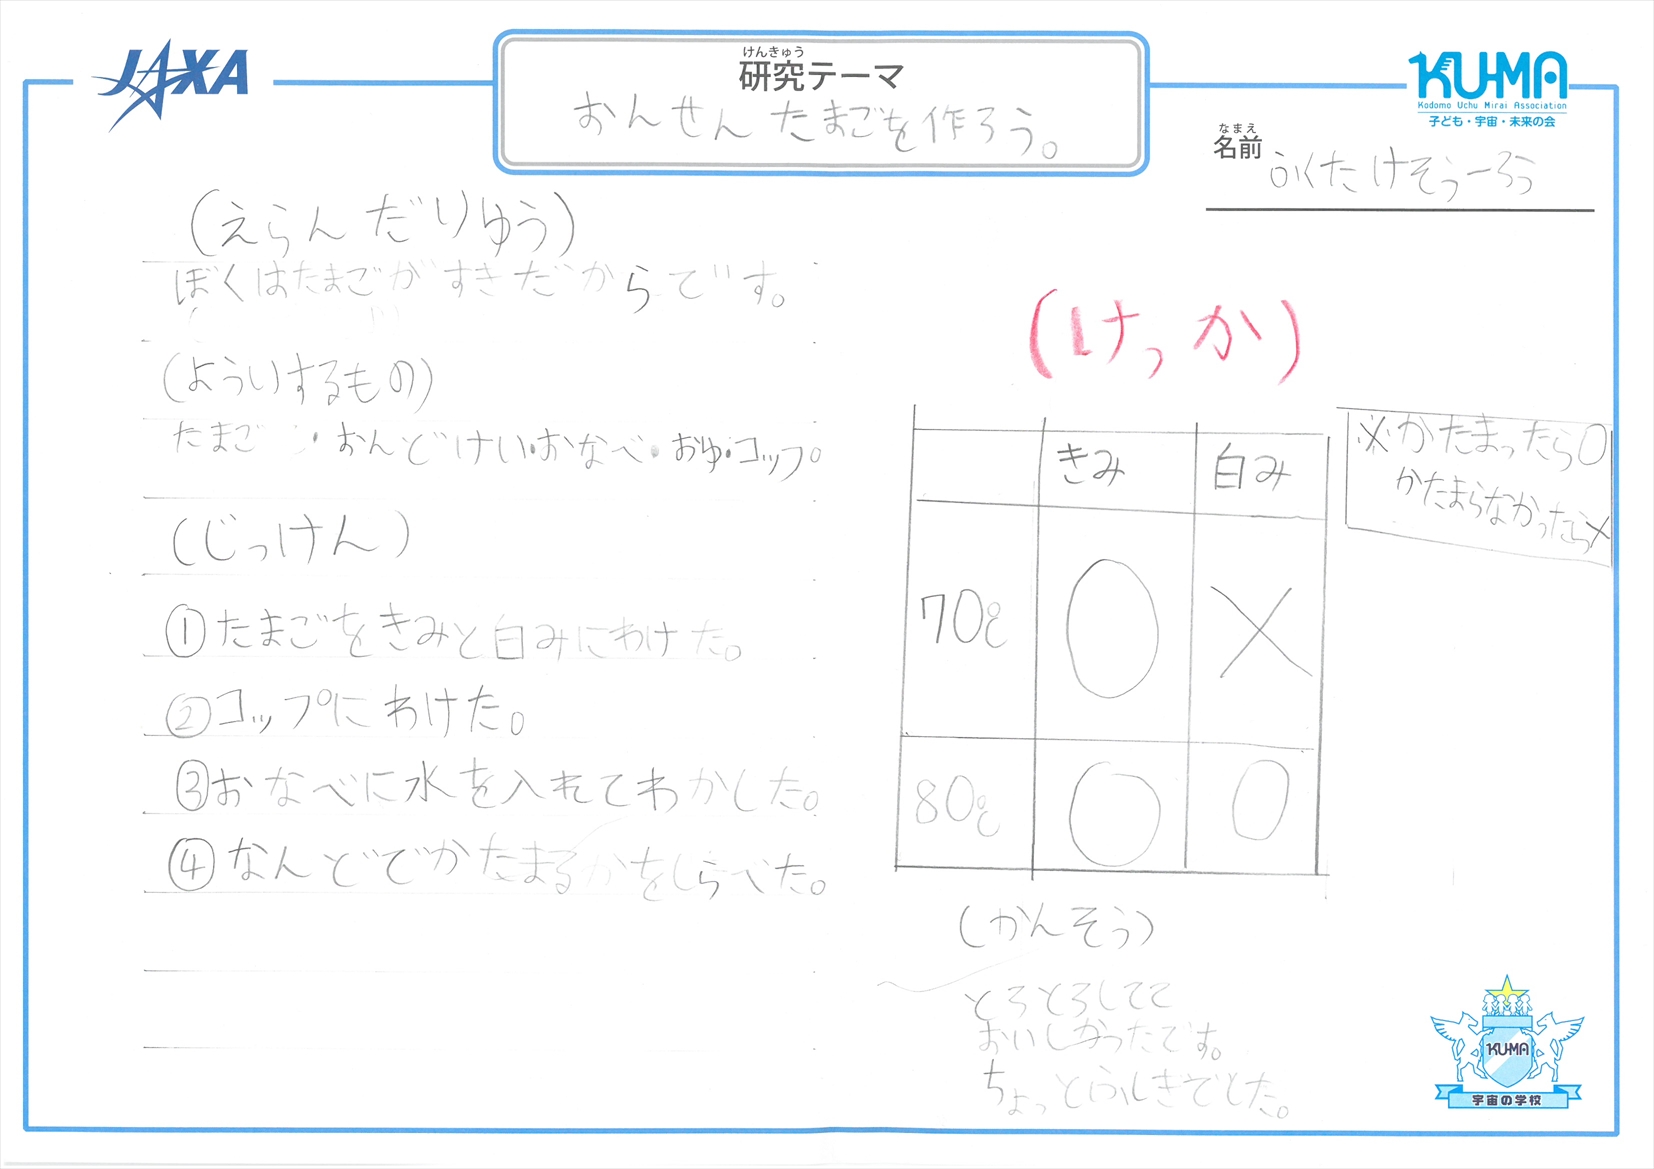 JAXA
けんきゅう
研究テーマ
おんせんたまごを作ろう。
KU-MA
Kodomo Uchu Mirai Association
子ども・宇宙・未来の会
なまえ
名前
ふくたけそうーろう
(えらんだりゆう)
ぼくはたまごがすきだからです。
(よういするもの)
たまご・おんどけい・おなべ・おゆ・コップ。
(じっけん)
①たまごをきみと白みにわけた。
②コップにわけた。
③おなべに水を入れてわかした。
④なんどでかたまるかをしらべた。
(けっか)
きみ 白み
70℃ ○ ×
80℃ ○ ○
※かたまったら○
かたまらなかったら×
(かんそう)
とろとろしてて
おいしかったです。
ちょっとふしぎでした。
KU-MA
宇宙の学校